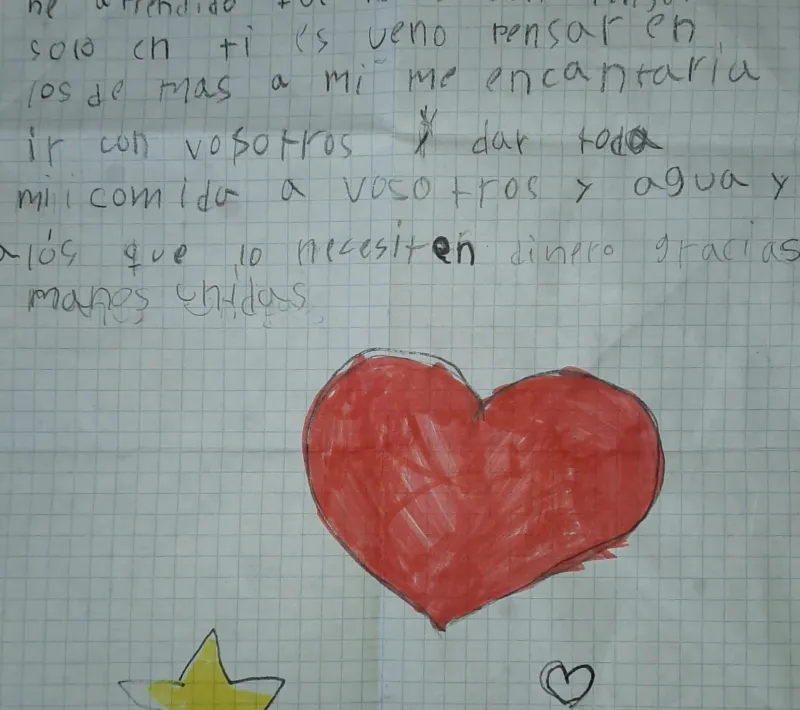 he arrendido
solo en ti es veno pensar en
los de mas a mi me encantaria
ir con vosotros y dar toda
mi comida a vosotros y agua y
a los que lo necesiten dinero gracias